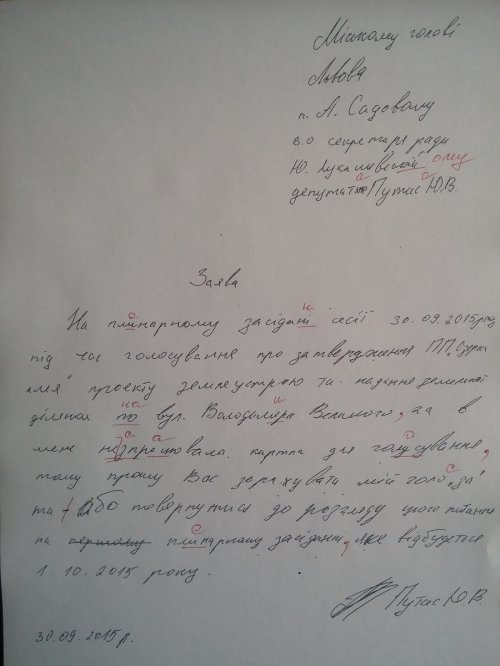 Міському голові
Львова
п. А. Садовому
в.о секретаря ради
Ю. Лукашевській ому
депутата Путас Ю.В.
Заява
На плінарному засідані сесії 30.09.2015 року
під час голосування про затвердження ПП
проекту землеустрою та надання земельної
ділянки по на вул. Володимери и Великого, а в
мене незпрецювала картка для голусування,
тому прошу Вас зарахувати мій голос „за"
та Або повернутися до розгляду цього питання
на плінарному засіданні, яке відбудеться
1.10.2015 року.
Путас Ю.В.
30.09.2015р.